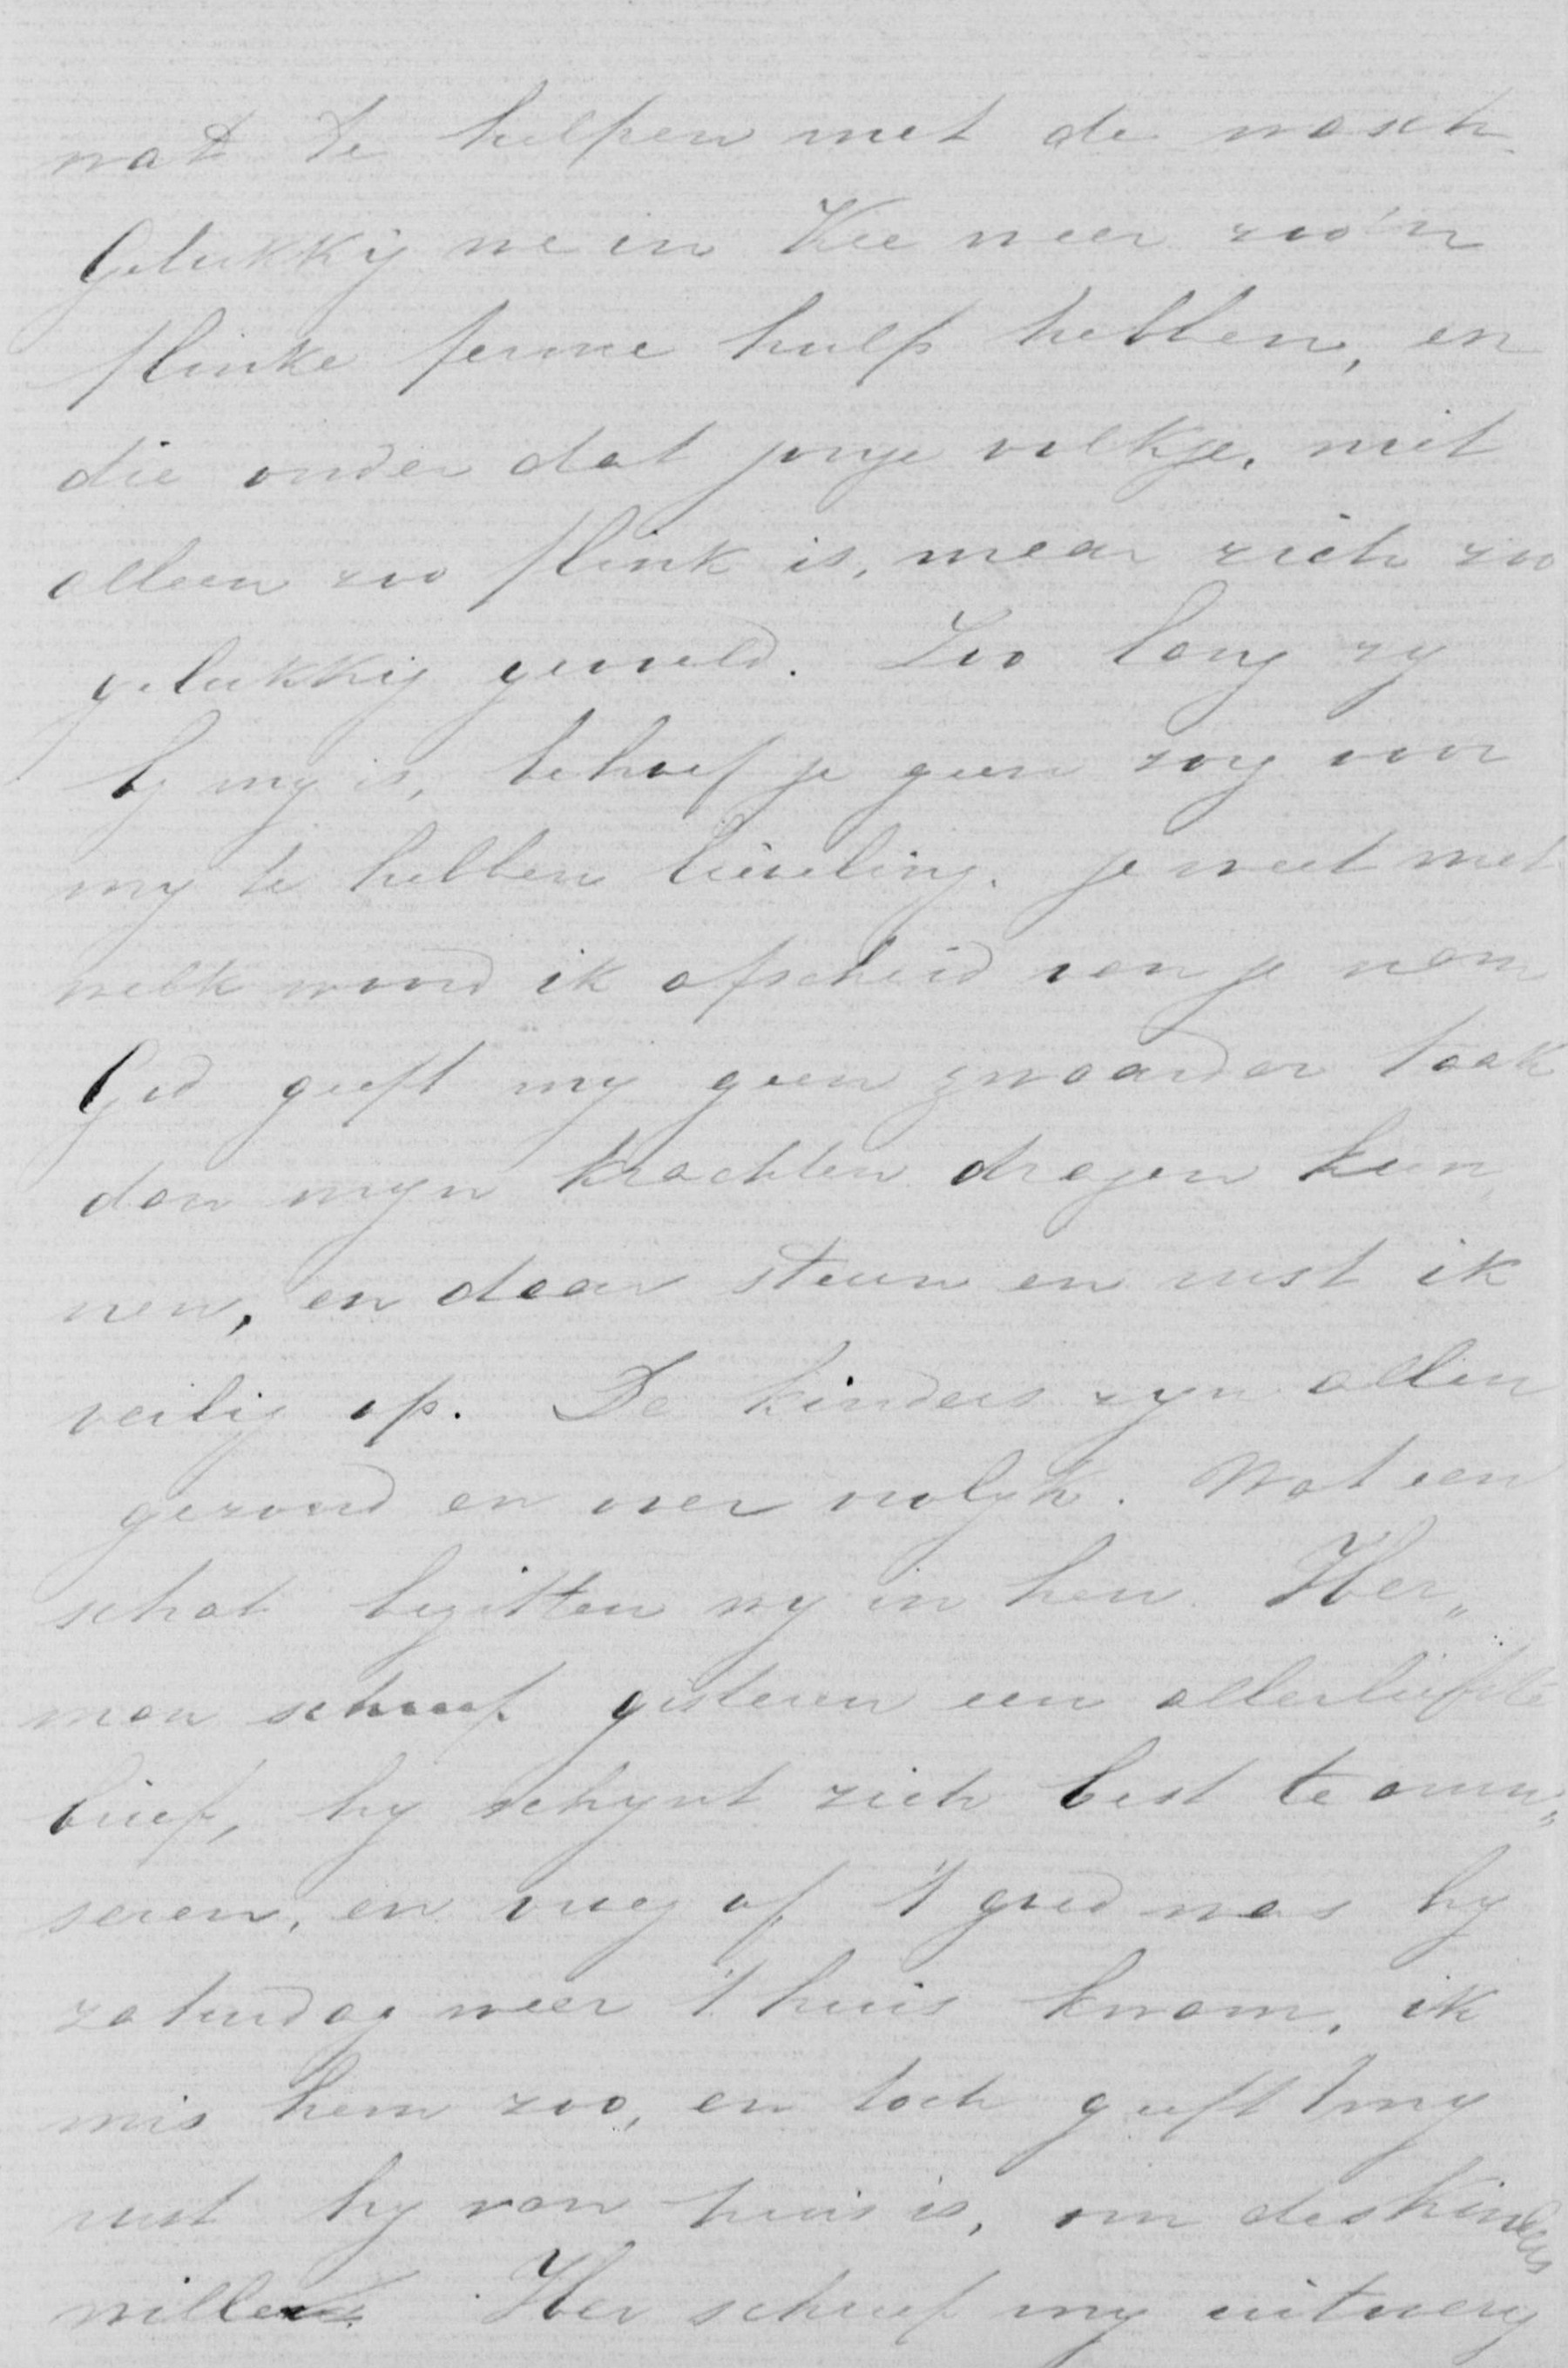 wat te helpen met de wasch.
Gelukkig we in Kee weer zoo'n
flinke ferme hulp hebben, en
die onder dat jonge volkje, niet
alleen zoo flink is, maar zich zoo
gelukkig gevoeld. Zoo lang zy
by my is, behoef je geen zorg voor
my te hebben lieveling. je weet met
welk woord ik afscheid van je nam
God geeft my geen zwaarder taak
dan myn krachten dragen kun„
nen, en daar steun en rust ik
veilig op. De kinders zyn allen
gezond en over vrolyk. Wat een
schat bezitten wy in hen. Her„
man schreef gisteren een allerliefste
brief, hy schynt zich best te amu„
seren, en vroeg of 't goed was hy
zaturdag weer 't huis kwam, ik
mis hem zoo, en toch geeft 't my
rust hy van huis is, om des kinders
wille. Her schreef my uitwerg